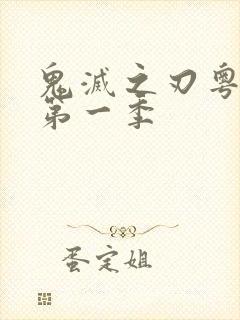 鬼滅之刃粤
第一季
蛋定姐